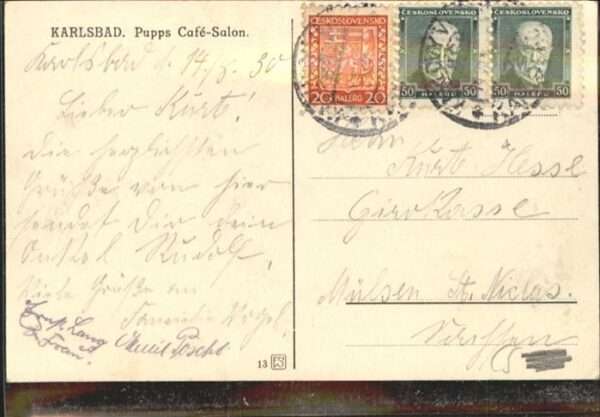 KARLSBAD. Pupps Café-Salon.
Karlsbad d. 14/8. 30
Lieber Kurt!
Die herzlichsten
Grüße von hier
sendet Dir dein
Onkel Rudolf.
Viele Grüße an
Familie Vogel.
u Frau.
Emil Poscht
13
ČESKOSLOVENSKO
20 HALÉŘŮ 20
ČESKOSLOVENSKO
50 HALÉŘŮ 50
ČESKOSLOVENSKO
50 HALÉŘŮ 50
Herrn
Kurt Hesse
Girokasse
Mülsen St. Niclas.
Sachsen